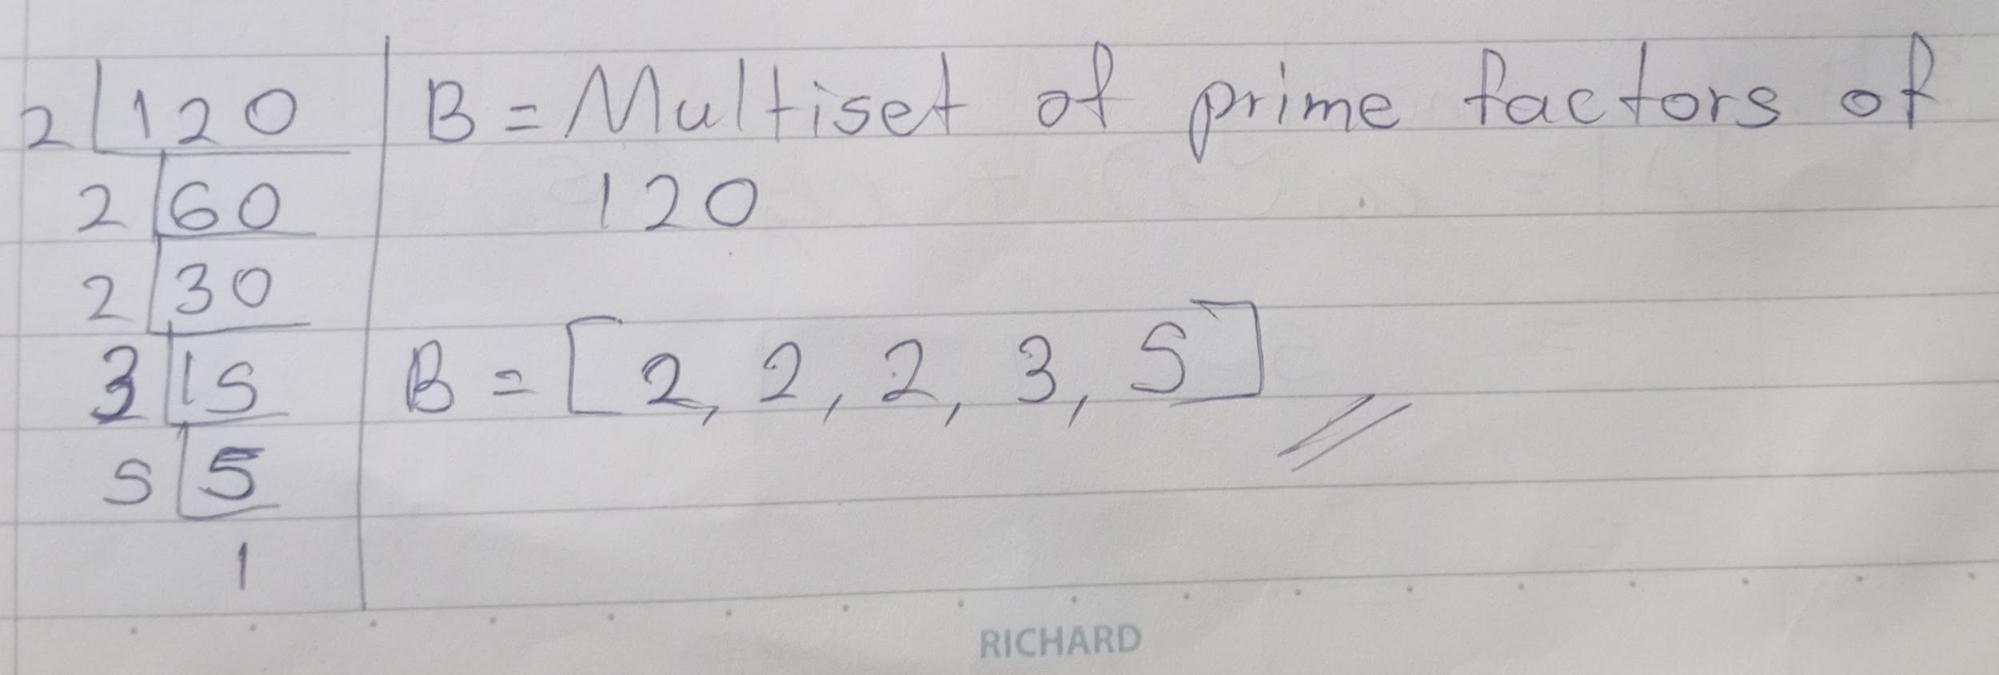 2 | 120
2 | 60
2 | 30
3 | 15
5 | 5
1
B = Multiset of prime factors of
120
B = [2, 2, 2, 3, 5]
RICHARD